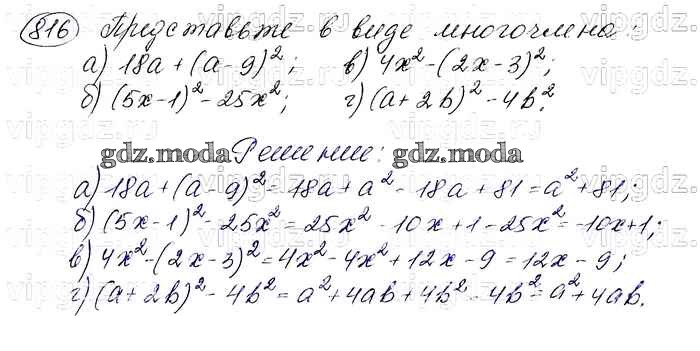 816 Представьте в виде многочлена:
а) 18a + (a - 9)²;   в) 4x² - (2x - 3)²;
б) (5x - 1)² - 25x²;   г) (a + 2b)² - 4b².
gdz.moda Решение: gdz.moda
а) 18a + (a - 9)² = 18a + a² - 18a + 81 = a² + 81;
б) (5x - 1)² - 25x² = 25x² - 10x + 1 - 25x² = -10x + 1;
в) 4x² - (2x - 3)² = 4x² - 4x² + 12x - 9 = 12x - 9;
г) (a + 2b)² - 4b² = a² + 4ab + 4b² - 4b² = a² + 4ab.